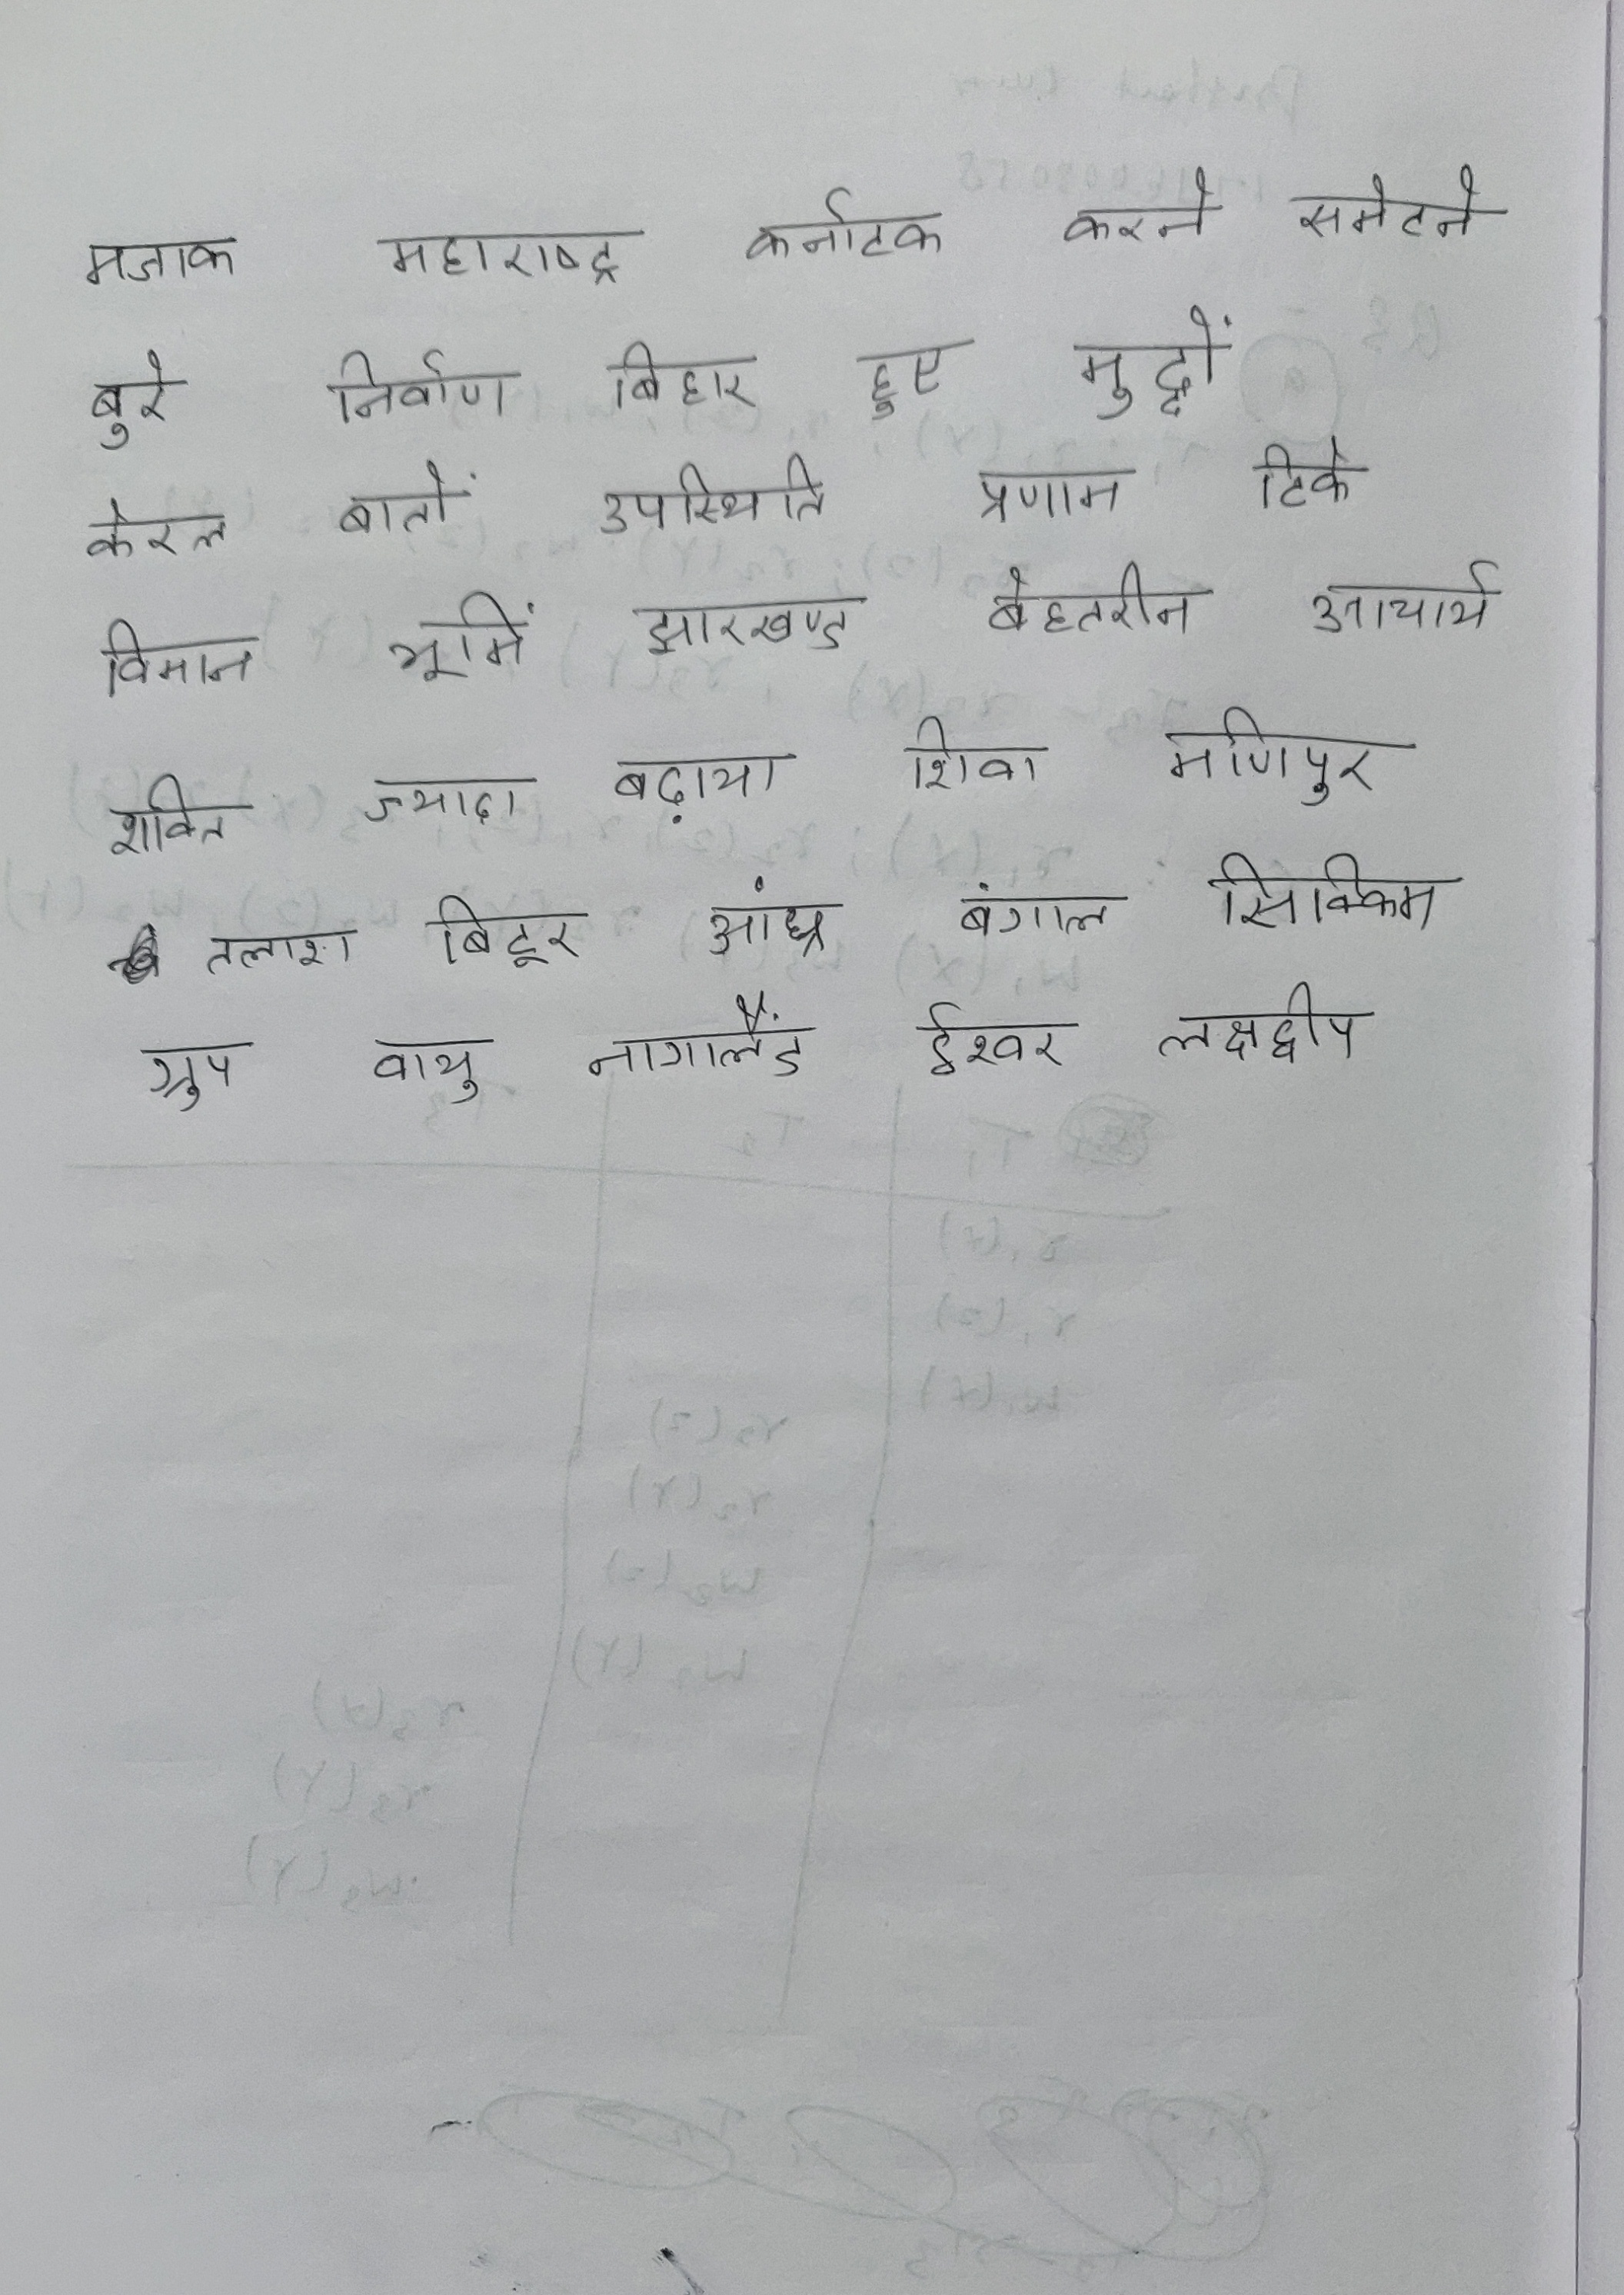 मजाक महाराष्ट्र कर्नाटक करने समेटने
बुरे निर्वाण बिहार हुए मुद्दों
केरल बातों उपस्थिति प्रणाम टिके
विमान भूमिं झारखण्ड बेहतरीन आचार्य
शक्ति ज्यादा बढ़ाया शिवा मणिपुर
तलाश बिदूर आंध्र बंगाल सिक्किम
ग्रुप वायु नागालैंड ईश्वर लक्षद्वीप